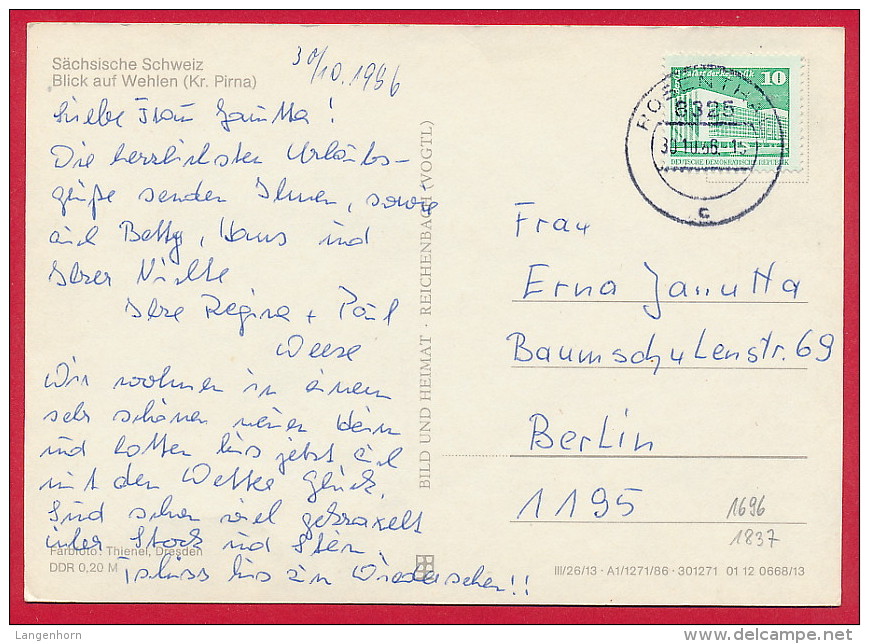 Sächsische Schweiz
Blick auf Wehlen (Kr. Pirna)
30/10.1986
Liebe Frau Janutta!
Die herzlichsten Urlaubs-
grüße senden Ihnen, sowie
auch Betty, Hans und
Ihrer Nichte
Ihre Regina + Paul
Weese
Wir wohnen in einem
sehr schönen neuen Heim
und hatten bis jetzt auch
mit dem Wetter Glück.
Sind schon viel gekraxelt
über Stock und Stein.
Tschüss bis zum Wiedersehen!!
Farbfoto: Thienel, Dresden
DDR 0,20 M
BILD UND HEIMAT · REICHENBACH (VOGTL)
ROSENTHAL
8325
30.10.86.-15
c
Palast der Republik 10
DEUTSCHE DEMOKRATISCHE REPUBLIK
Frau
Erna Janutta
Baumschulenstr. 69
Berlin
1195
1696
1837
III/26/13 · A1/1271/86 · 301271 01 12 0668/13
Langenhorn
www.delcampe.net